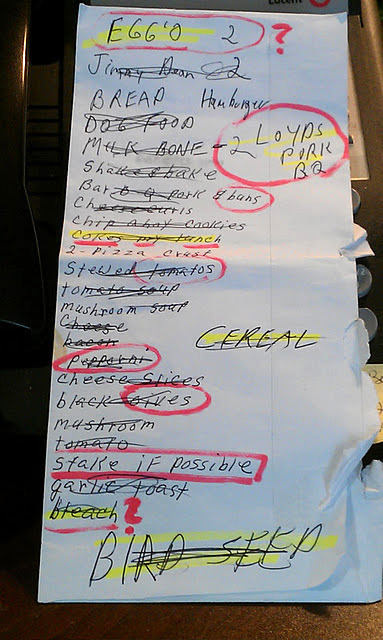 Lucent
EGG'O 2 ?
Jimmy Dean 2
BREAD Hamburger
DOG FOOD
MILK BONE - 2 LOYDS
PORK
BQ
Shake & bake
Bar B Q pork & buns
Cheese curls
chip ahoy cookies
Cokes my lunch
2 - Pizza crust
Stewed tomatos
tomato soup
mushroom soup
Cheese
bacon
CEREAL
Pepparni
cheese Slices
black olives
mushroom
tomato
stake if possible
garlic toast
bleach ?
BIRD SEED